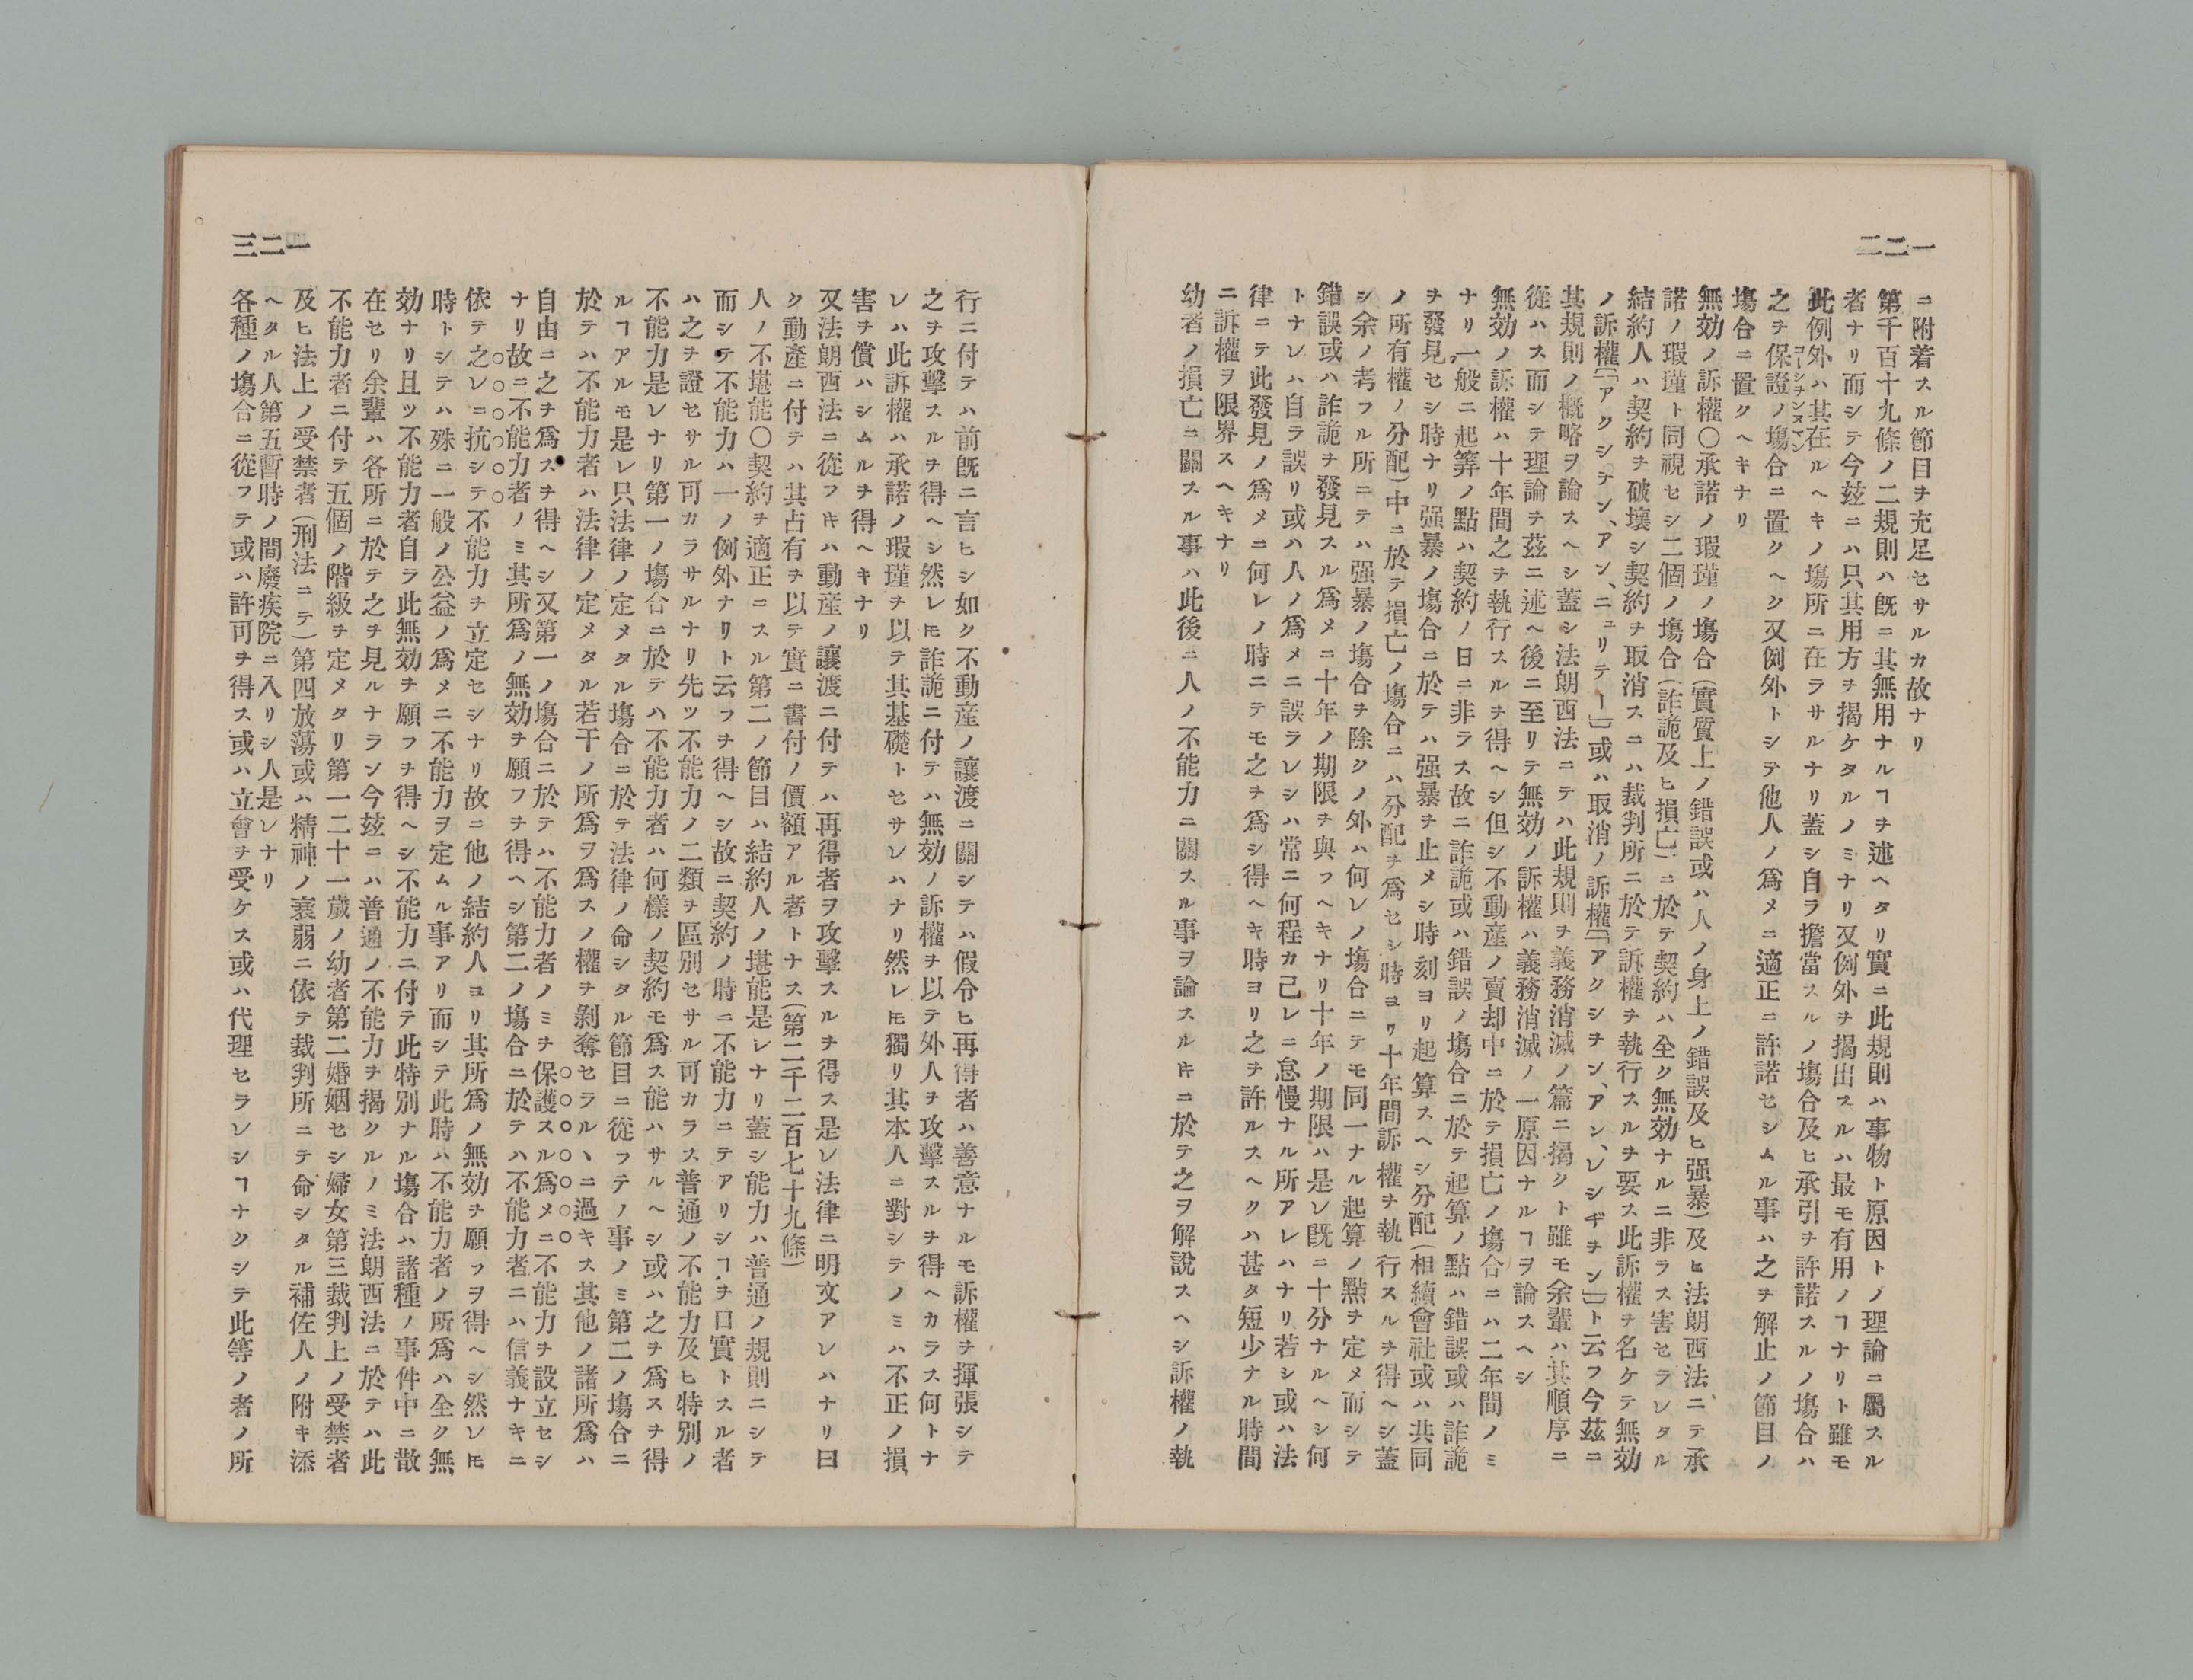 一二二
ニ附着スル節目ヲ充足セサルカ故ナリ
第千百十九條ノ二規則ハ既ニ其無用ナルヿヲ述ヘタリ實ニ此規則ハ事物ト原因トノ理論ニ屬スル
者ナリ而シテ今玆ニハ只其用方ヲ揭ケタルノミナリ又例外ヲ揭出スルハ最モ有用ノヿナリト雖モ
此例外ハ其在ルヘキノ塲所ニ在ラサルナリ蓋シ自ラ擔當スルノ塲合及ヒ承引ヲ許諾スルノ塲合ハ
之ヲ保證ノ塲合ニ置クヘク又例外トシテ他人ノ爲メニ適正ニ許諾セシムル事ハ之ヲ解止ノ節目ノ
塲合ニ置クヘキナリ
無効ノ訴權〇承諾ノ瑕瑾ノ塲合(實質上ノ錯誤或ハ人ノ身上ノ錯誤及ヒ强暴)及ヒ法朗西法ニテ承
諾ノ瑕瑾ト同視セシ二個ノ塲合(詐詭及ヒ損亡)ニ於テ契約ハ全ク無効ナルニ非ラス害セラレタル
結約人ハ契約ヲ破壞シ契約ヲ取消スニハ裁判所ニ於テ訴權ヲ執行スルヲ要ス此訴權ヲ名ケテ無効
ノ訴權[「アクシヲン、アン、ニュリテー」]或ハ取消ノ訴權[「アクシヲン、アン、レシヂヲン」]ト云フ今茲ニ
其規則ノ概略ヲ論スヘシ蓋シ法朗西法ニテハ此規則ヲ義務消滅ノ篇ニ揭クト雖モ余輩ハ其順序ニ
從ハス而シテ理論ヲ茲ニ述ヘ後ニ至リテ無効ノ訴權ハ義務消滅ノ一原因ナルヿヲ論スヘシ
無効ノ訴權ハ十年間之ヲ執行スルヲ得ヘシ但シ不動産ノ賣却中ニ於テ損亡ノ塲合ニハ二年間ノミ
ナリ一般ニ起筭ノ點ハ契約ノ日ニ非ラス故ニ詐詭或ハ錯誤ノ塲合ニ於テ起算ノ點ハ錯誤或ハ詐詭
ヲ發見セシ時ナリ强暴ノ塲合ニ於テハ强暴ヲ止メシ時刻ヨリ起算スヘシ分配(相續會社或ハ共同
ノ所有權ノ分配)中ニ於テ損亡ノ塲合ニハ分配ヲ爲セシ時ヨリ十年間訴權ヲ執行スルヲ得ヘシ蓋
シ余ノ考フル所ニテハ强暴ノ塲合ヲ除クノ外ハ何レノ塲合ニテモ同一ナル起算ノ點ヲ定メ而シテ
錯誤或ハ詐詭ヲ發見スル爲メニ十年ノ期限ヲ與フヘキナリ十年ノ期限ハ是レ既ニ十分ナルヘシ何
トナレハ自ラ誤リ或ハ人ノ爲メニ誤ラレシハ常ニ何程カ己レニ怠慢ナル所アレハナリ若シ或ハ法
律ニテ此發見ノ爲メニ何レノ時ニテモ之ヲ爲シ得ヘキ時ヨリ之ヲ許ルスヘクハ甚タ短少ナル時間
ニ訴權ヲ限界スヘキナリ
幼者ノ損亡ニ關スル事ハ此後ニ人ノ不能力ニ關スル事ヲ論スル𪜈ニ於テ之ヲ解說スヘシ訴權ノ執
一二三
行ニ付テハ前既ニ言ヒシ如ク不動産ノ讓渡ニ關シテハ假令ヒ再得者ハ善意ナルモ訴權ヲ揮張シテ
之ヲ攻擊スルヲ得ヘシ然レ𪜈詐詭ニ付テハ無効ノ訴權ヲ以テ外人ヲ攻擊スルヲ得ヘカラス何トナ
レハ此訴權ハ承諾ノ瑕瑾ヲ以テ其基礎トセサレハナリ然レ𪜈獨リ其本人ニ對シテノミハ不正ノ損
害ヲ償ハシムルヲ得ヘキナリ
又法朗西法ニ從フ𪜈ハ動産ノ讓渡ニ付テハ再得者ヲ攻擊スルヲ得ス是レ法律ニ明文アレハナリ曰
ク動産ニ付テハ其占有ヲ以テ實ニ書付ノ價額アル者トナス(第二千二百七十九條)
人ノ不堪能〇契約ヲ適正ニスル第二ノ節目ハ結約人ノ堪能是レナリ蓋シ能力ハ普通ノ規則ニシテ
而シテ不能力ハ一ノ例外ナリト云フヲ得ヘシ故ニ契約ノ時ニ不能力ニテアリシヿヲ口實トスル者
ハ之ヲ證セサル可カラサルナリ先ツ不能力ノ二類ヲ區別セサル可カラス普通ノ不能力及ヒ特別ノ
不能力是レナリ第一ノ塲合ニ於テハ不能力者ハ何樣ノ契約モ爲ス能ハサルヘシ或ハ之ヲ爲スヲ得
ルヿアルモ是レ只法律ノ定メタル塲合ニ於テ法律ノ命シタル節目ニ從フテノ事ノミ第二ノ塲合ニ
於テハ不能力者ハ法律ノ定メタル若干ノ所爲ヲ爲スノ權ヲ剝奪セラルヽニ過キス其他ノ諸所爲ハ
自由ニ之ヲ爲スヲ得ヘシ又第一ノ塲合ニ於テハ不能力者ノミヲ保護スル爲メニ不能力ヲ設立セシ
ナリ故ニ不能力者ノミ其所爲ノ無効ヲ願フヲ得ヘシ第二ノ塲合ニ於テハ不能力者ニハ信義ナキニ
依テ之レニ抗シテ不能力ヲ立定セシナリ故ニ他ノ結約人ヨリ其所爲ノ無効ヲ願フヲ得ヘシ然レ𪜈
時トシテハ殊ニ一般ノ公益ノ爲メニ不能力ヲ定ムル事アリ而シテ此時ハ不能力者ノ所爲ハ全ク無
効ナリ且ツ不能力者自ラ此無効ヲ願フヲ得ヘシ不能力ニ付テ此特別ナル塲合ハ諸種ノ事件中ニ散
在セリ余輩ハ各所ニ於テ之ヲ見ルナラン今玆ニハ普通ノ不能力ヲ揭クルノミ法朗西法ニ於テハ此
不能力者ニ付テ五個ノ階級ヲ定メタリ第一二十一歲ノ幼者第二婚姻セシ婦女第三裁判上ノ受禁者
及ヒ法上ノ受禁者(刑法ニテ)第四放蕩或ハ精神ノ衰弱ニ依テ裁判所ニテ命シタル補佐人ノ附キ添
ヘタル人第五暫時ノ間廢疾院ニ入リシ人是レナリ
各種ノ塲合ニ從フテ或ハ許可ヲ得ス或ハ立會ヲ受ケス或ハ代理セラレシヿナクシテ此等ノ者ノ所